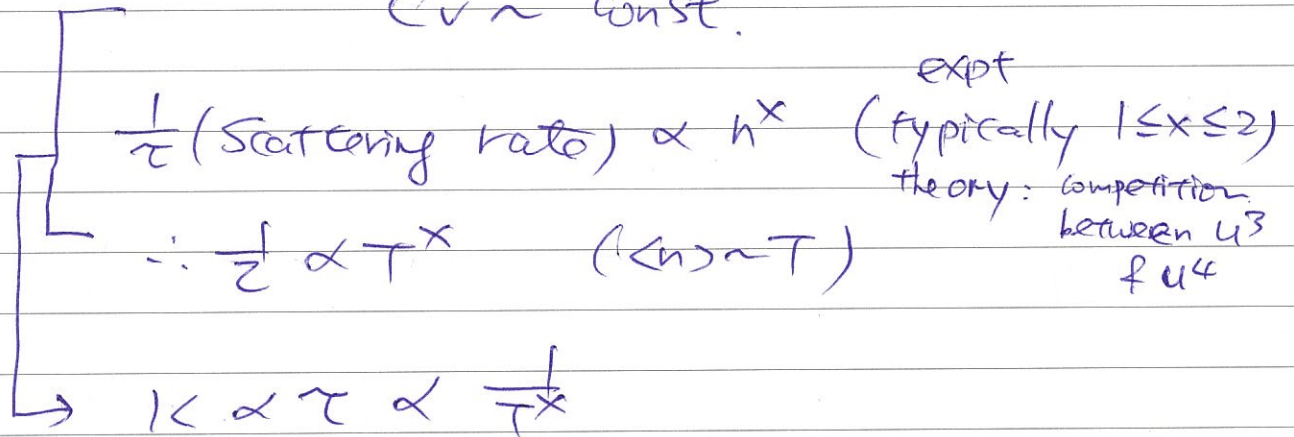 Cv ~ const.
expt
1/τ (scattering rate) ∝ n^x (typically 1≤x≤2)
theory: competition
between u^3
& u^4
∴ 1/τ ∝ T^x (<n>~T)
→ K ∝ τ ∝ 1/T^x